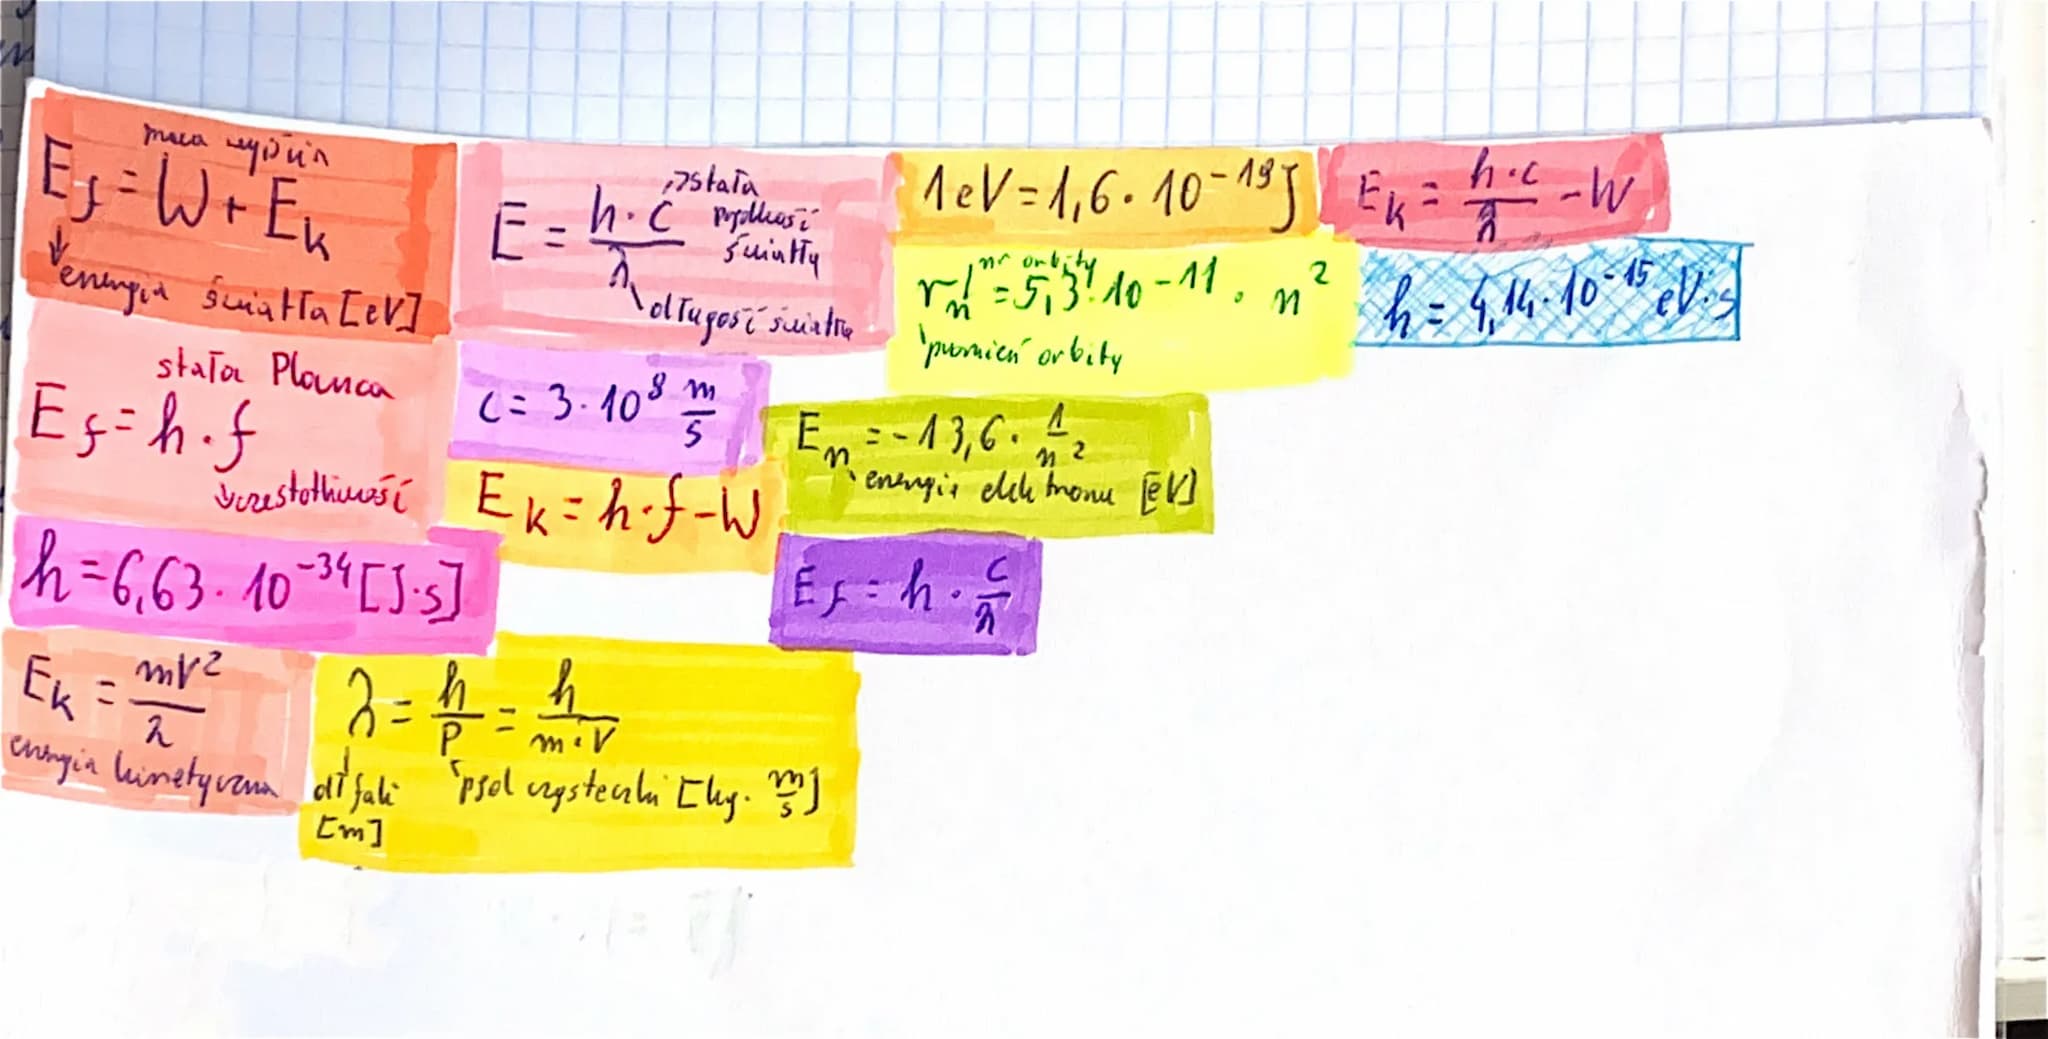 praca wyjścia
E_f = W + E_k
energia światła [eV]
E = h·c/λ
stała prędkość światła
długość światła
1eV = 1,6 · 10^-19 J
E_k = h·c/λ - W
nr orbity
r_n = 5,3·10^-11 · n^2
promień orbity
h = 4,14·10^-15 eV·s
stała Plancka
E_f = h·f
częstotliwość
c = 3·10^8 m/s
E_n = -13,6 · 1/n^2
energia elektronu [eV]
E_k = h·f - W
h = 6,63·10^-34 [J·s]
E_f = h · c/λ
E_k = mV^2/2
energia kinetyczna
λ = h/p = h/m·V
dł fali [m]
pęd cząsteczki [kg · m/s]